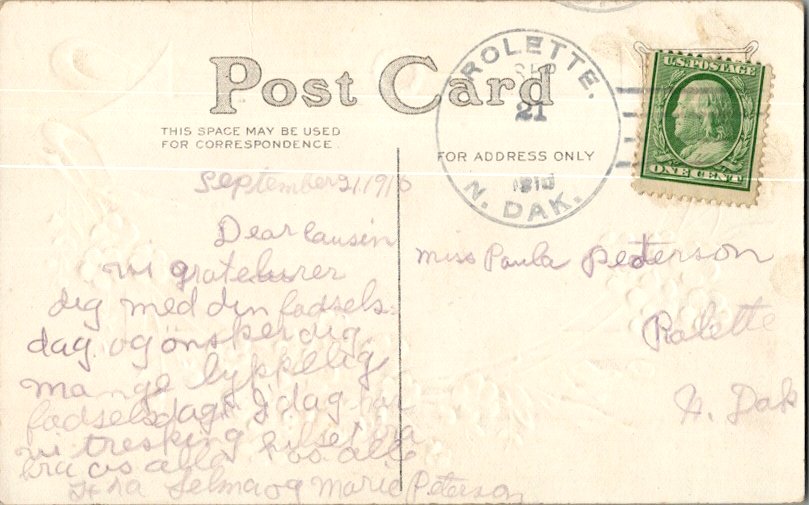 Post Card
THIS SPACE MAY BE USED
FOR CORRESPONDENCE.
FOR ADDRESS ONLY
ROLETTE.
SEP
21
N. DAK.
U.S. POSTAGE
ONE CENT
September 21, 191
Dear Causin
wi gratelurer
dig med din fadsels
dag og önsker dig
mange lyppelig
fadselsdag. I dag har
wi tresking hilset fra
fra os alle hos alle
fra Selma og Marie Peterson
Miss Paula Pederson
Rolette
N. Dak